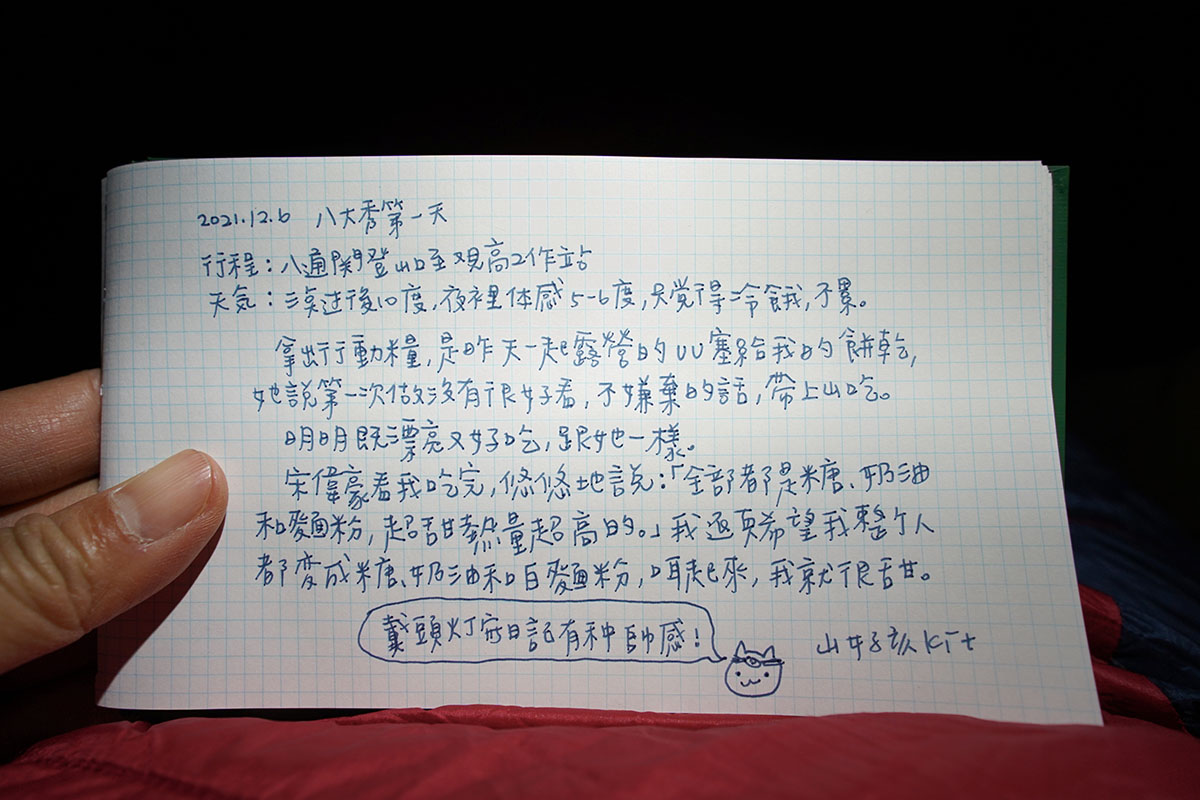 2021.12.6 八大秀第一天
行程：八通關登山口至观高工作站
天気：淡过後10度，夜裡体感5-6度，只覚得冷餓，不累。
拿出行動糧，是昨天一起露營的UU塞給我的餅乾，
她說第一次做沒有很好看，不嫌棄的話，帶上山吃。
明明既漂亮又好吃，跟她一樣。
宋偉豪看我吃完，悠悠地說：「全部都是糖、奶油
和麵粉，超甜熱量超高的。」我還真希望我整个人
都變成糖、奶油和白麵粉，哭起來，我就很甜。
戴頭灯写日記有种帥感！
山女孩Kit